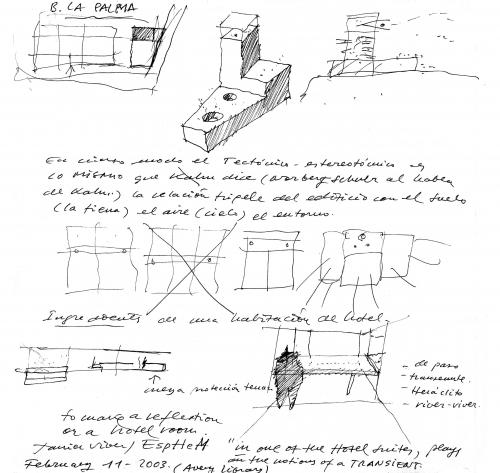 B. LA PALMA
En cierto modo el Tectónico-estereotómico es
lo mismo que Kahn dice (Norberg Schulz al hablar
de Kahn.) la relación triple del edificio con el suelo
(la tierra) el aire (cielo) el entorno.
Ingredients de una habitación de hotel
mesa
- de paso
transeunte.
- Heráclito
- vivir-vivir.
to make a reflection
or a hotel room
February 11-2003. (Avery Library)
"in one of the Hotel Suites, plays
on the notions of a TRANSIENT.